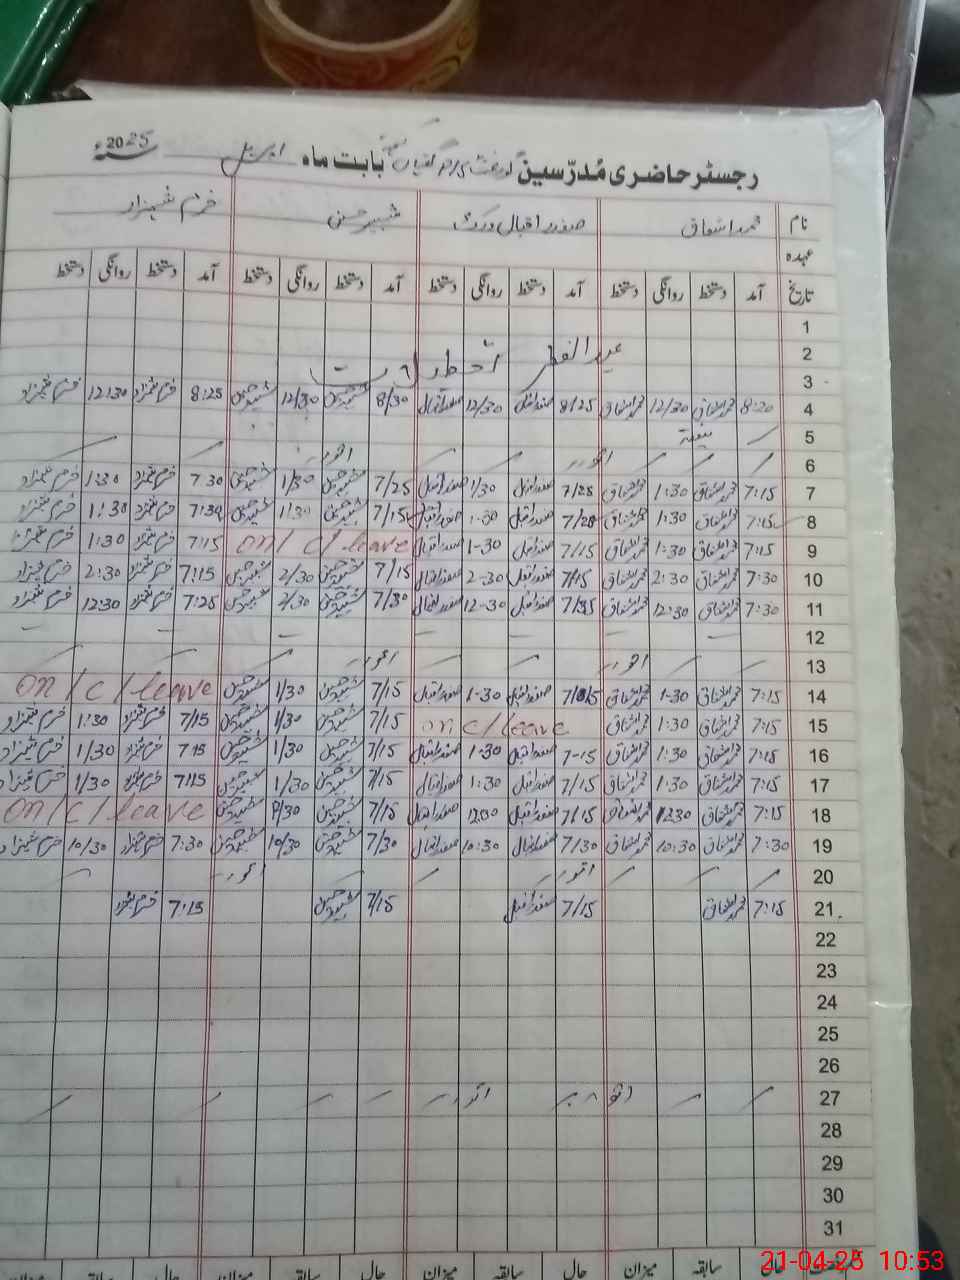 رجسٹر حاضری مُدرّسین گورنمنٹ بابت ماہ اپریل 2025ء
نام محمد اشفاق صفدر اقبال ورک شبیر حسین خرم شہزاد
عہدہ
تاریخ آمد دستخط روانگی دستخط آمد دستخط روانگی دستخط آمد دستخط روانگی دستخط آمد دستخط روانگی دستخط
1
2 عید الفطر
3
4 8:20 محمد اشفاق 12/30 محمد اشفاق 8/25 صفدر اقبال 12/30 صفدر اقبال 8/30 شبیر حسین 12/30 شبیر حسین 8:25 خرم شہزاد 12:30 خرم شہزاد
5
6 اتوار اتوار
7 7:15 محمد اشفاق 1:30 محمد اشفاق 7/25 صفدر اقبال 1/30 صفدر اقبال 7/25 شبیر حسین 1/30 شبیر حسین 7:30 خرم شہزاد 1:30 خرم شہزاد
8 7:15 محمد اشفاق 1:30 محمد اشفاق 7/20 صفدر اقبال 1-30 صفدر اقبال 7/15 شبیر حسین 1:30 شبیر حسین 7:30 خرم شہزاد 1:30 خرم شہزاد
9 7:15 محمد اشفاق 1:30 محمد اشفاق 7/15 صفدر اقبال 1-30 صفدر اقبال on/ c/ leave 7:15 خرم شہزاد 1:30 خرم شہزاد
10 7:30 محمد اشفاق 2:30 محمد اشفاق 7/15 صفدر اقبال 2-30 صفدر اقبال 7/15 شبیر حسین 2/30 شبیر حسین 7:15 خرم شہزاد 2:30 خرم شہزاد
11 7:30 محمد اشفاق 12:30 محمد اشفاق صفدر اقبال 12-30 صفدر اقبال 7/30 شبیر حسین شبیر حسین 7:25 خرم شہزاد 12:30 خرم شہزاد
12
13 اتوار اتوار
14 7:15 محمد اشفاق 1-30 محمد اشفاق صفدر اقبال 1-30 صفدر اقبال 7/15 شبیر حسین 1/30 شبیر حسین on/c/leave
15 7:15 محمد اشفاق 1:30 محمد اشفاق on c/leave 7/15 شبیر حسین 1/30 شبیر حسین 7/15 خرم شہزاد 1:30 خرم شہزاد
16 7:15 محمد اشفاق 1:30 محمد اشفاق 7-15 صفدر اقبال 1-30 صفدر اقبال 7/15 شبیر حسین 1/30 شبیر حسین 7:15 خرم شہزاد 1/30 خرم شہزاد
17 7:15 محمد اشفاق 1:30 محمد اشفاق 7/15 صفدر اقبال 1:30 صفدر اقبال 7/15 شبیر حسین 1/30 شبیر حسین 7:15 خرم شہزاد 1/30 خرم شہزاد
18 7:15 محمد اشفاق 12:30 محمد اشفاق 7/15 صفدر اقبال 12:00 صفدر اقبال 7/15 شبیر حسین شبیر حسین on/c/leave
19 7:30 محمد اشفاق 10:30 محمد اشفاق 7/30 صفدر اقبال 10:30 صفدر اقبال 7/30 شبیر حسین 10/30 شبیر حسین 7:30 خرم شہزاد 10/30 خرم شہزاد
20 اتوار اتوار
21 7:15 محمد اشفاق 7/15 صفدر اقبال 7/15 شبیر حسین 7:15 خرم شہزاد
22
23
24
25
26
27 اتوار اتوار
28
29
30
31
حال سابقہ میزان حال سابقہ میزان حال سابقہ میزان حال سابقہ
21-04-25 10:53